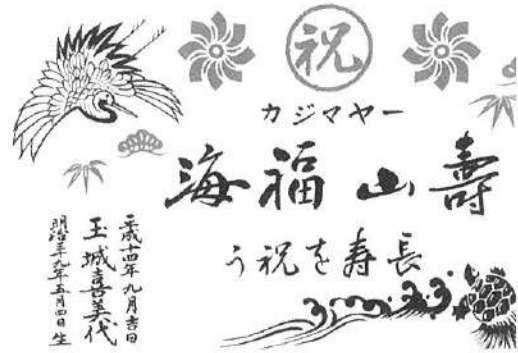 祝
カジマヤー
壽山福海
長寿を祝う
平成十四年九月吉日
玉城喜美代
明治三十九年五月四日生